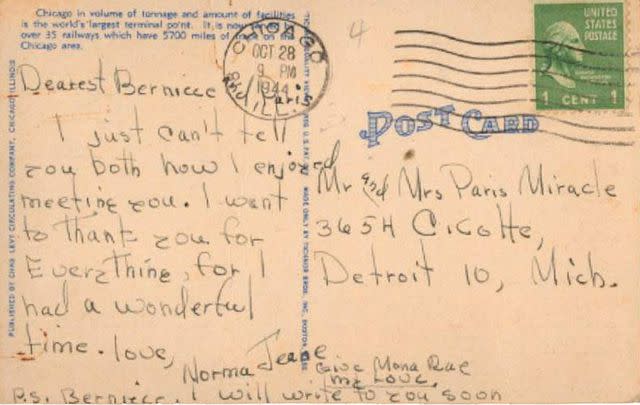 Chicago in volume of tonnage and amount of facilities
is the world's largest terminal point. It is now
over 35 railways which have 5700 miles of on the
Chicago area.
CHICAGO
OCT 28
9 PM
1944
ILL.
4
UNITED
STATES
POSTAGE
1 CENT 1
POST CARD
Dearest Berniece
and Paris
I just can't tell
you both how I enjoyed
meeting you. I want
to thank you for
Everything, for I
had a wonderful
time. love,
Norma Jeane
P.S. Berniece. I will write to you soon
Give Mona Rae
my Love.
Mr and Mrs Paris Miracle
3654 Cicotte,
Detroit 10, Mich.
PUBLISHED BY CHAS. LEVY CIRCULATING COMPANY, CHICAGO, ILLINOIS
MADE ONLY BY TICHNOR BROS., INC., BOSTON